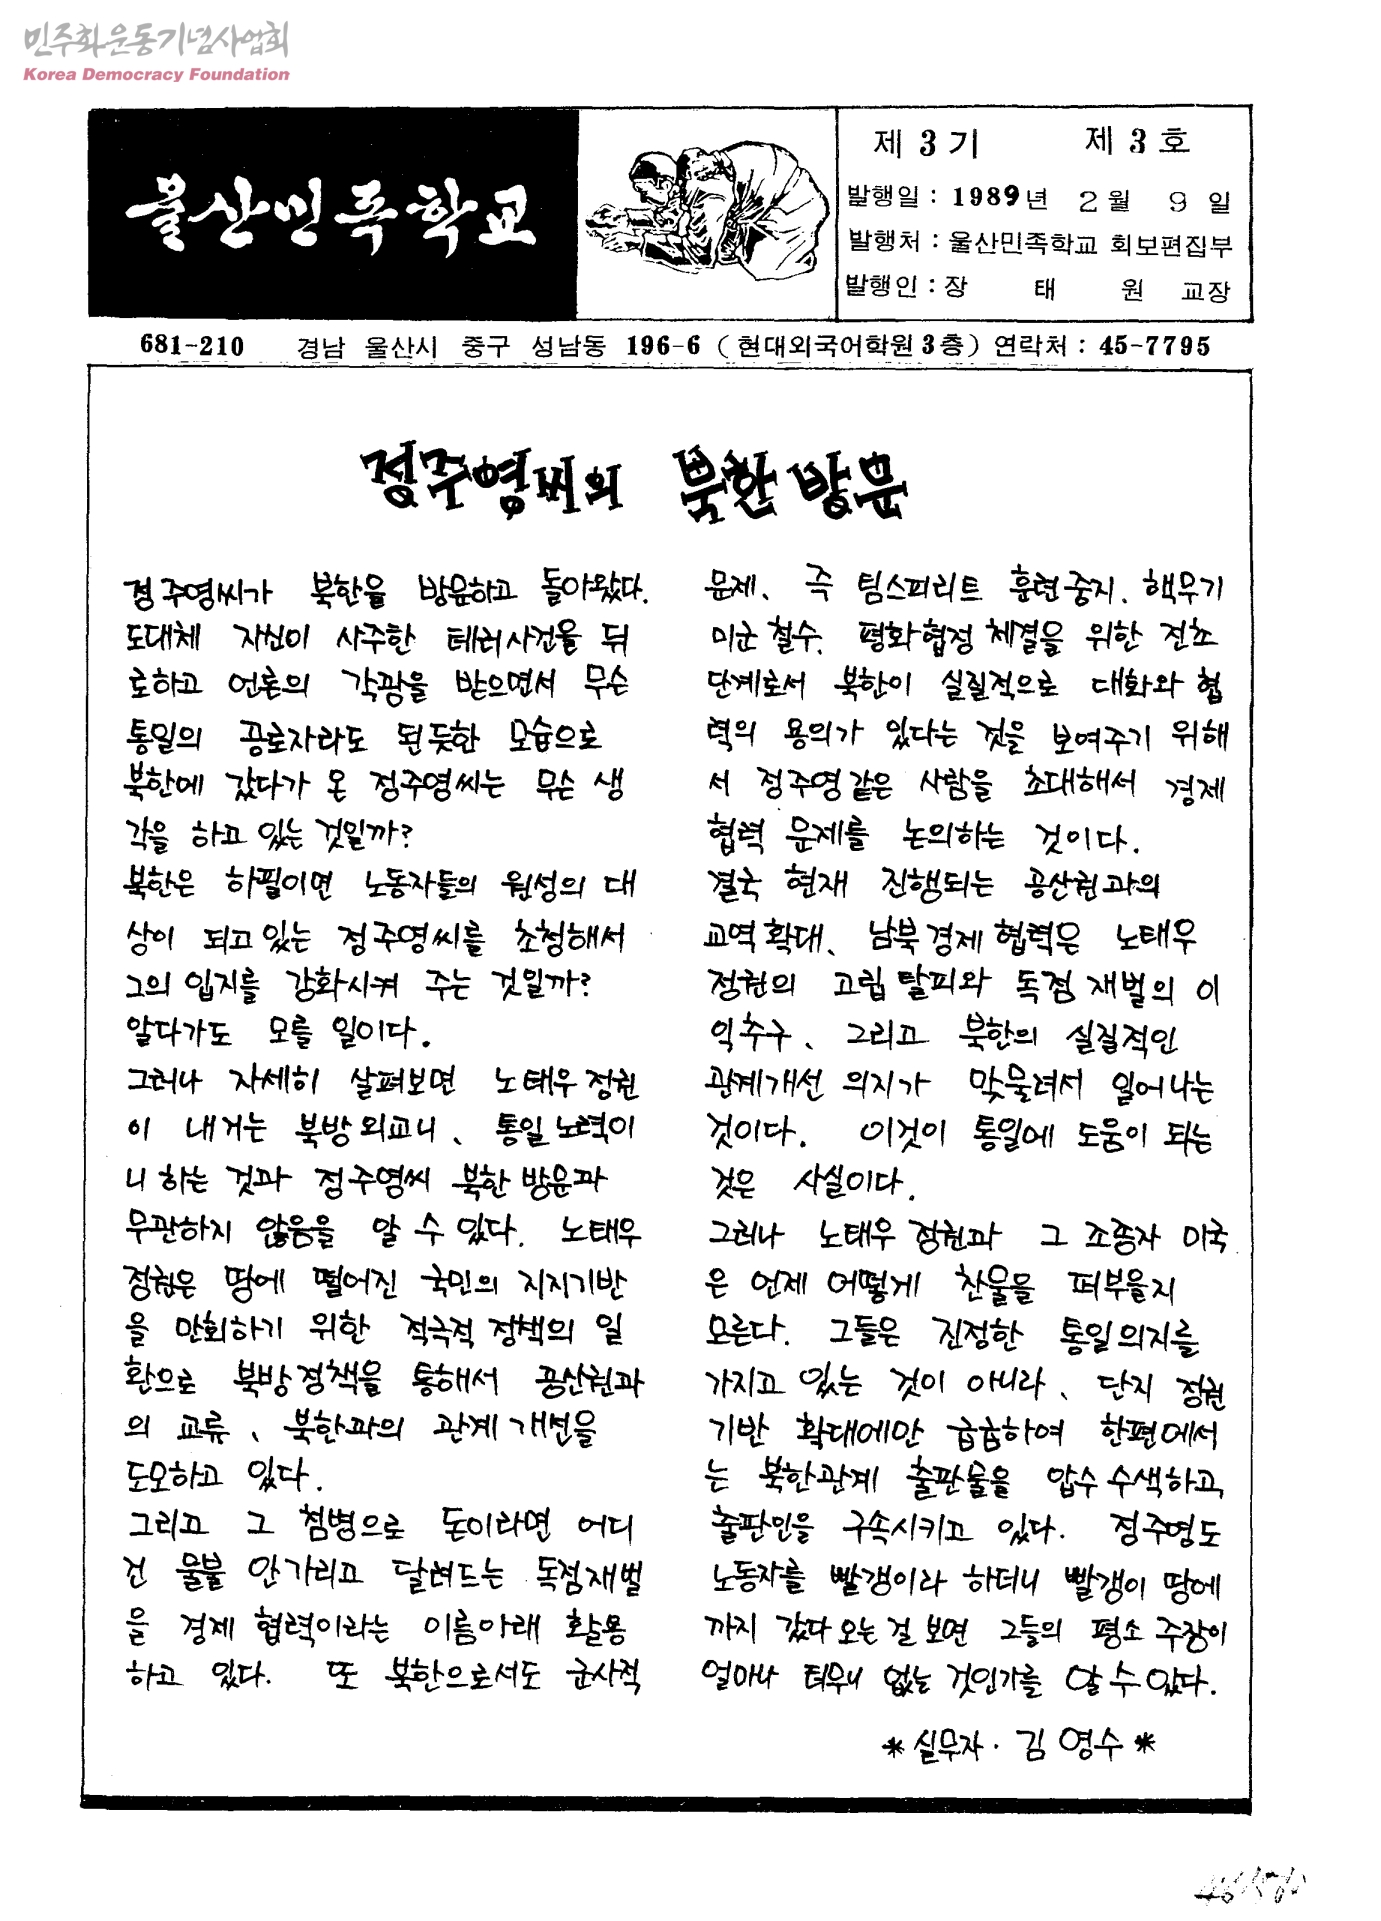 민주화운동기념사업회
Korea Democracy Foundation
울산민족학교
제 3 기 제 3 호
발행일 : 1989년 2월 9일
발행처 : 울산민족학교 회보편집부
발행인 : 장 태 원 교장
681-210 경남 울산시 중구 성남동 196-6 ( 현대외국어학원 3 층 ) 연락처 : 45-7795
정주영씨의 북한 방문
정주영씨가 북한을 방문하고 돌아왔다.
도대체 자신이 사주한 테러사건을 뒤
로하고 언론의 각광을 받으면서 무슨
통일의 공로자라도 된듯한 모습으로
북한에 갔다가 온 정주영씨는 무슨 생
각을 하고 있는 것일까?
북한은 하필이면 노동자들의 원성의 대
상이 되고 있는 정주영씨를 초청해서
그의 입지를 강화시켜 주는 것일까?
알다가도 모를 일이다.
그러나 자세히 살펴보면 노태우 정권
이 내거는 북방외교니、 통일노력이
니 하는 것과 정주영씨 북한 방문과
무관하지 않음을 알 수 있다. 노태우
정권은 땅에 떨어진 국민의 지지기반
을 만회하기 위한 적극적 정책의 일
환으로 북방정책을 통해서 공산권과
의 교류、 북한과의 관계개선을
도모하고 있다.
그리고 그 첨병으로 돈이라면 어디
건 물불 안가리고 달려드는 독점재벌
을 경제 협력이라는 이름아래 활용
하고 있다. 또 북한으로서도 군사적
문제、 즉 팀스피리트 훈련중지、핵무기
미군 철수、 평화협정 체결을 위한 전초
단계로서 북한이 실질적으로 대화와 협
력의 용의가 있다는 것을 보여주기 위해
서 정주영같은 사람을 초대해서 경제
협력 문제를 논의하는 것이다.
결국 현재 진행되는 공산권과의
교역확대、 남북경제협력은 노태우
정권의 고립탈피와 독점재벌의 이
익추구、 그리고 북한의 실질적인
관계개선 의지가 맞물려서 일어나는
것이다. 이것이 통일에 도움이 되는
것은 사실이다.
그러나 노태우 정권과 그 조종자 미국
은 언제 어떻게 찬물을 퍼부을지
모른다. 그들은 진정한 통일의지를
가지고 있는 것이 아니라、 단지 정권
기반 확대에만 급급하여 한편에서
는 북한관계 출판물을 압수 수색하고
출판인을 구속시키고 있다. 정주영도
노동자를 빨갱이라 하더니 빨갱이 땅에
까지 갔다 오는 걸 보면 그들의 평소 주장이
얼마나 터무니 없는 것인가를 알 수 있다.
* 실무자 · 김 영수 *